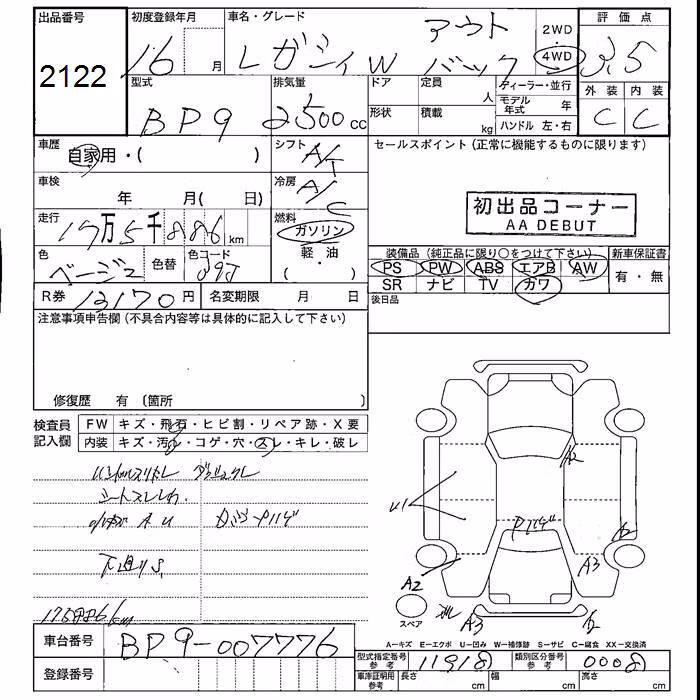 出品番号 初度登録年月 車名・グレード 2WD・4WD 評価点
2122 16 月 レガシィW アウトバック 3.5
型式 排気量 ドア 定員 人 ディーラー・並行 外装 内装
BP9 2500 cc 形状 積載 kg モデル年式 年 C C
ハンドル 左・右
車歴 自家用・( ) シフト A/T セールスポイント (正常に機能するものに限ります)
車検 年 月( 日) 冷房 A/C
初出品コーナー
AA DEBUT
走行 17万5千886 km 燃料 ガソリン
軽・油
( ・ )
色 ベージュ 色替 色コード
装備品 (純正品に限り○をつけて下さい) 新車保証書
PS PW ABS エアB AW 有・無
SR ナビ TV カワ
R券 13170円 名変期限 月 日 後日品
注意事項申告欄 (不具合内容等は具体的に記入して下さい)
修復歴 有 (箇所 )
検査員記入欄
FW キズ・飛石・ヒビ割・リペア跡・X要
内装 キズ・汚れ・コゲ・穴・スレ・キレ・破レ
シートスレしわ
下廻りS
175886km
A2
U1
P
A2
A3
A2
A3
スペア
A=キズ E=エクボ U=凹み W=補修跡 S=サビ C=腐食 XX=交換済
車台番号 BP9-007776
型式指定番号 参考 11918 類別区分番号 参考 0008
登録番号 車庫証明用 参考 長さ cm 幅 cm 高さ cm